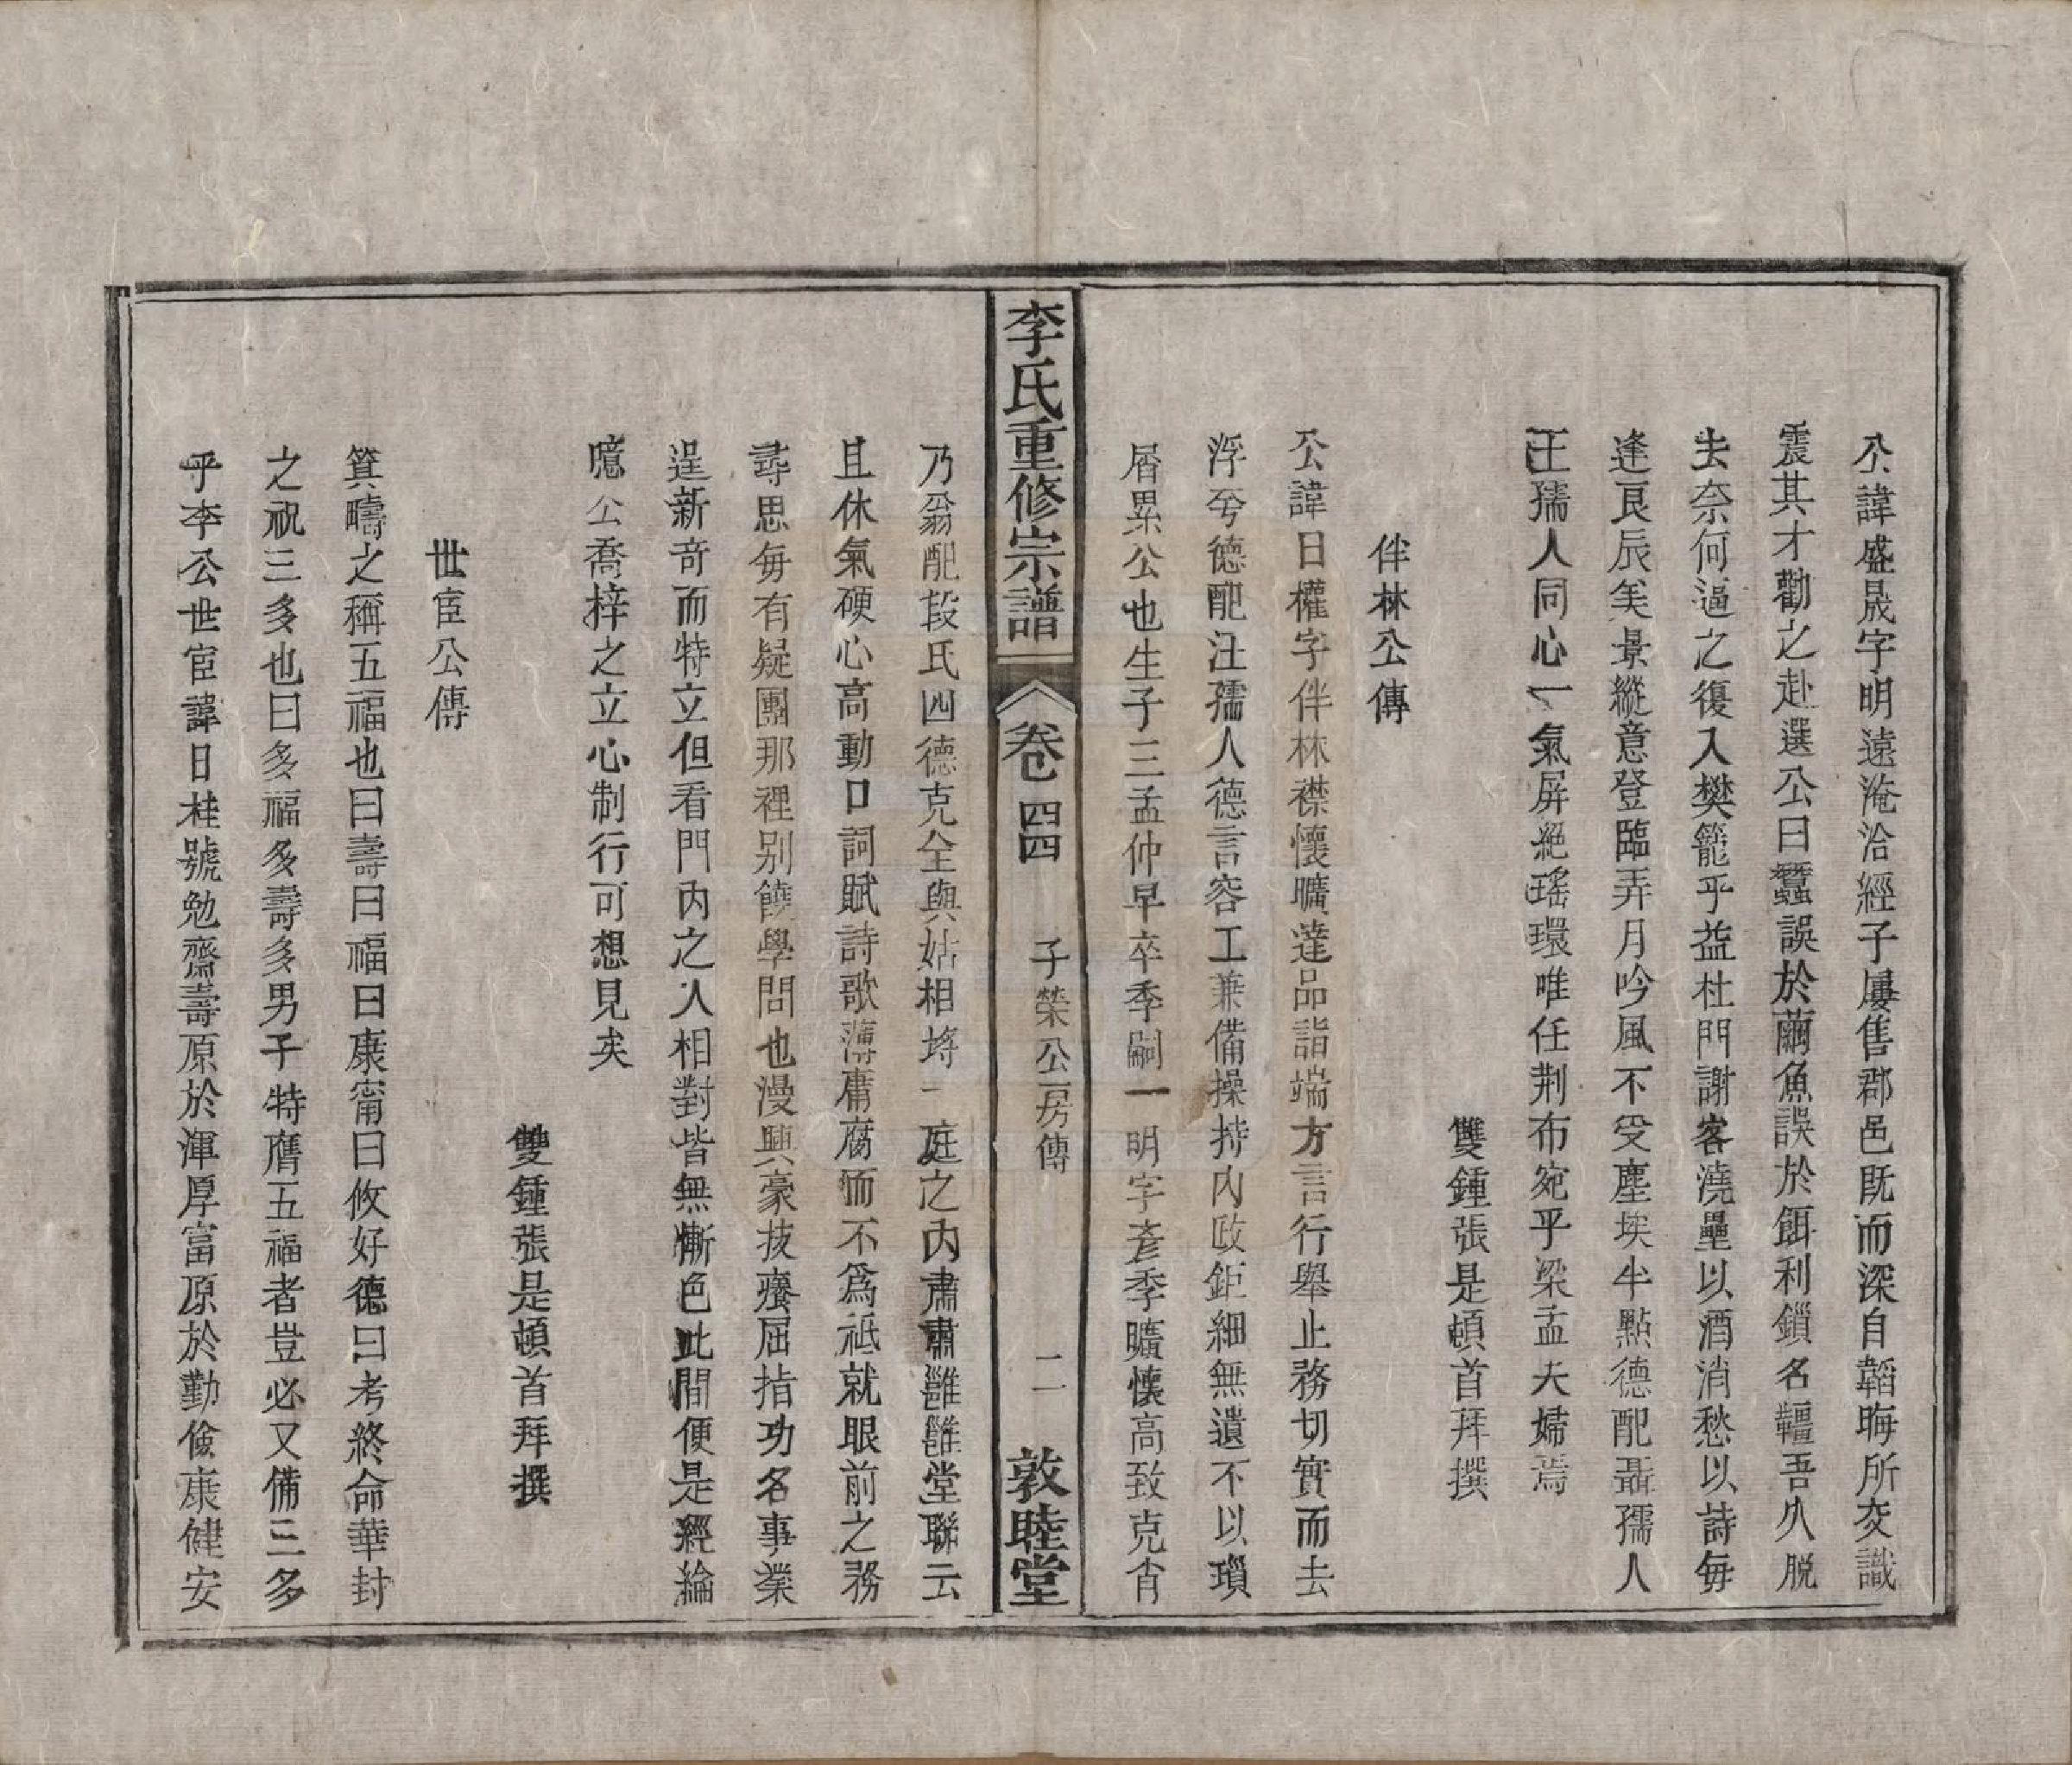 公諱盛晟字明遠淹洽經子屢售郡邑既而深自韜晦所交識
震其才勸之赴選公曰蠶誤於繭魚誤於餌利鎖名韁吾久脱
去奈何逼之復入樊籠乎益杜門謝客澆壘以酒消愁以詩每
逢良辰美景縱意登臨弄月吟風不受塵埃半點德配聶孺人
王孺人同心一氣屏絕瑤環唯任荆布宛乎梁孟夫婦焉
雙鍾張是頓首拜撰
伴林公傳
公諱日權字伴林襟懷曠達品詣端方言行舉止務切實而去
浮兮德配汪孺人德言容工兼備操持内政鉅細無遺不以瑣
屑累公也生子三孟仲早卒季嗣一明字彥季曠懷高致克肖
李氏重修宗譜
卷四四
子榮公房傳
二一
敦睦堂
乃翁配段氏四德克全與姑相埒一庭之内肅肅雝雝堂聯云
且休氣硬心高動口詞賦詩歌薄庸腐而不爲祗就眼前之務
尋思每有疑團那裡别饒學問也漫興豪技癢屈指功名事業
逞新奇而特立但看門内之人相對皆無慚色此間便是經綸
噫公喬梓之立心制行可想見矣
雙鍾張是頓首拜撰
世宦公傳
箕疇之稱五福也曰壽曰福曰康甯曰攸好德曰考終命華封
之祝三多也曰多福多壽多男子特膺五福者豈必又備三多
乎李公世宦諱日桂號勉齋壽原於渾厚富原於勤儉康健安